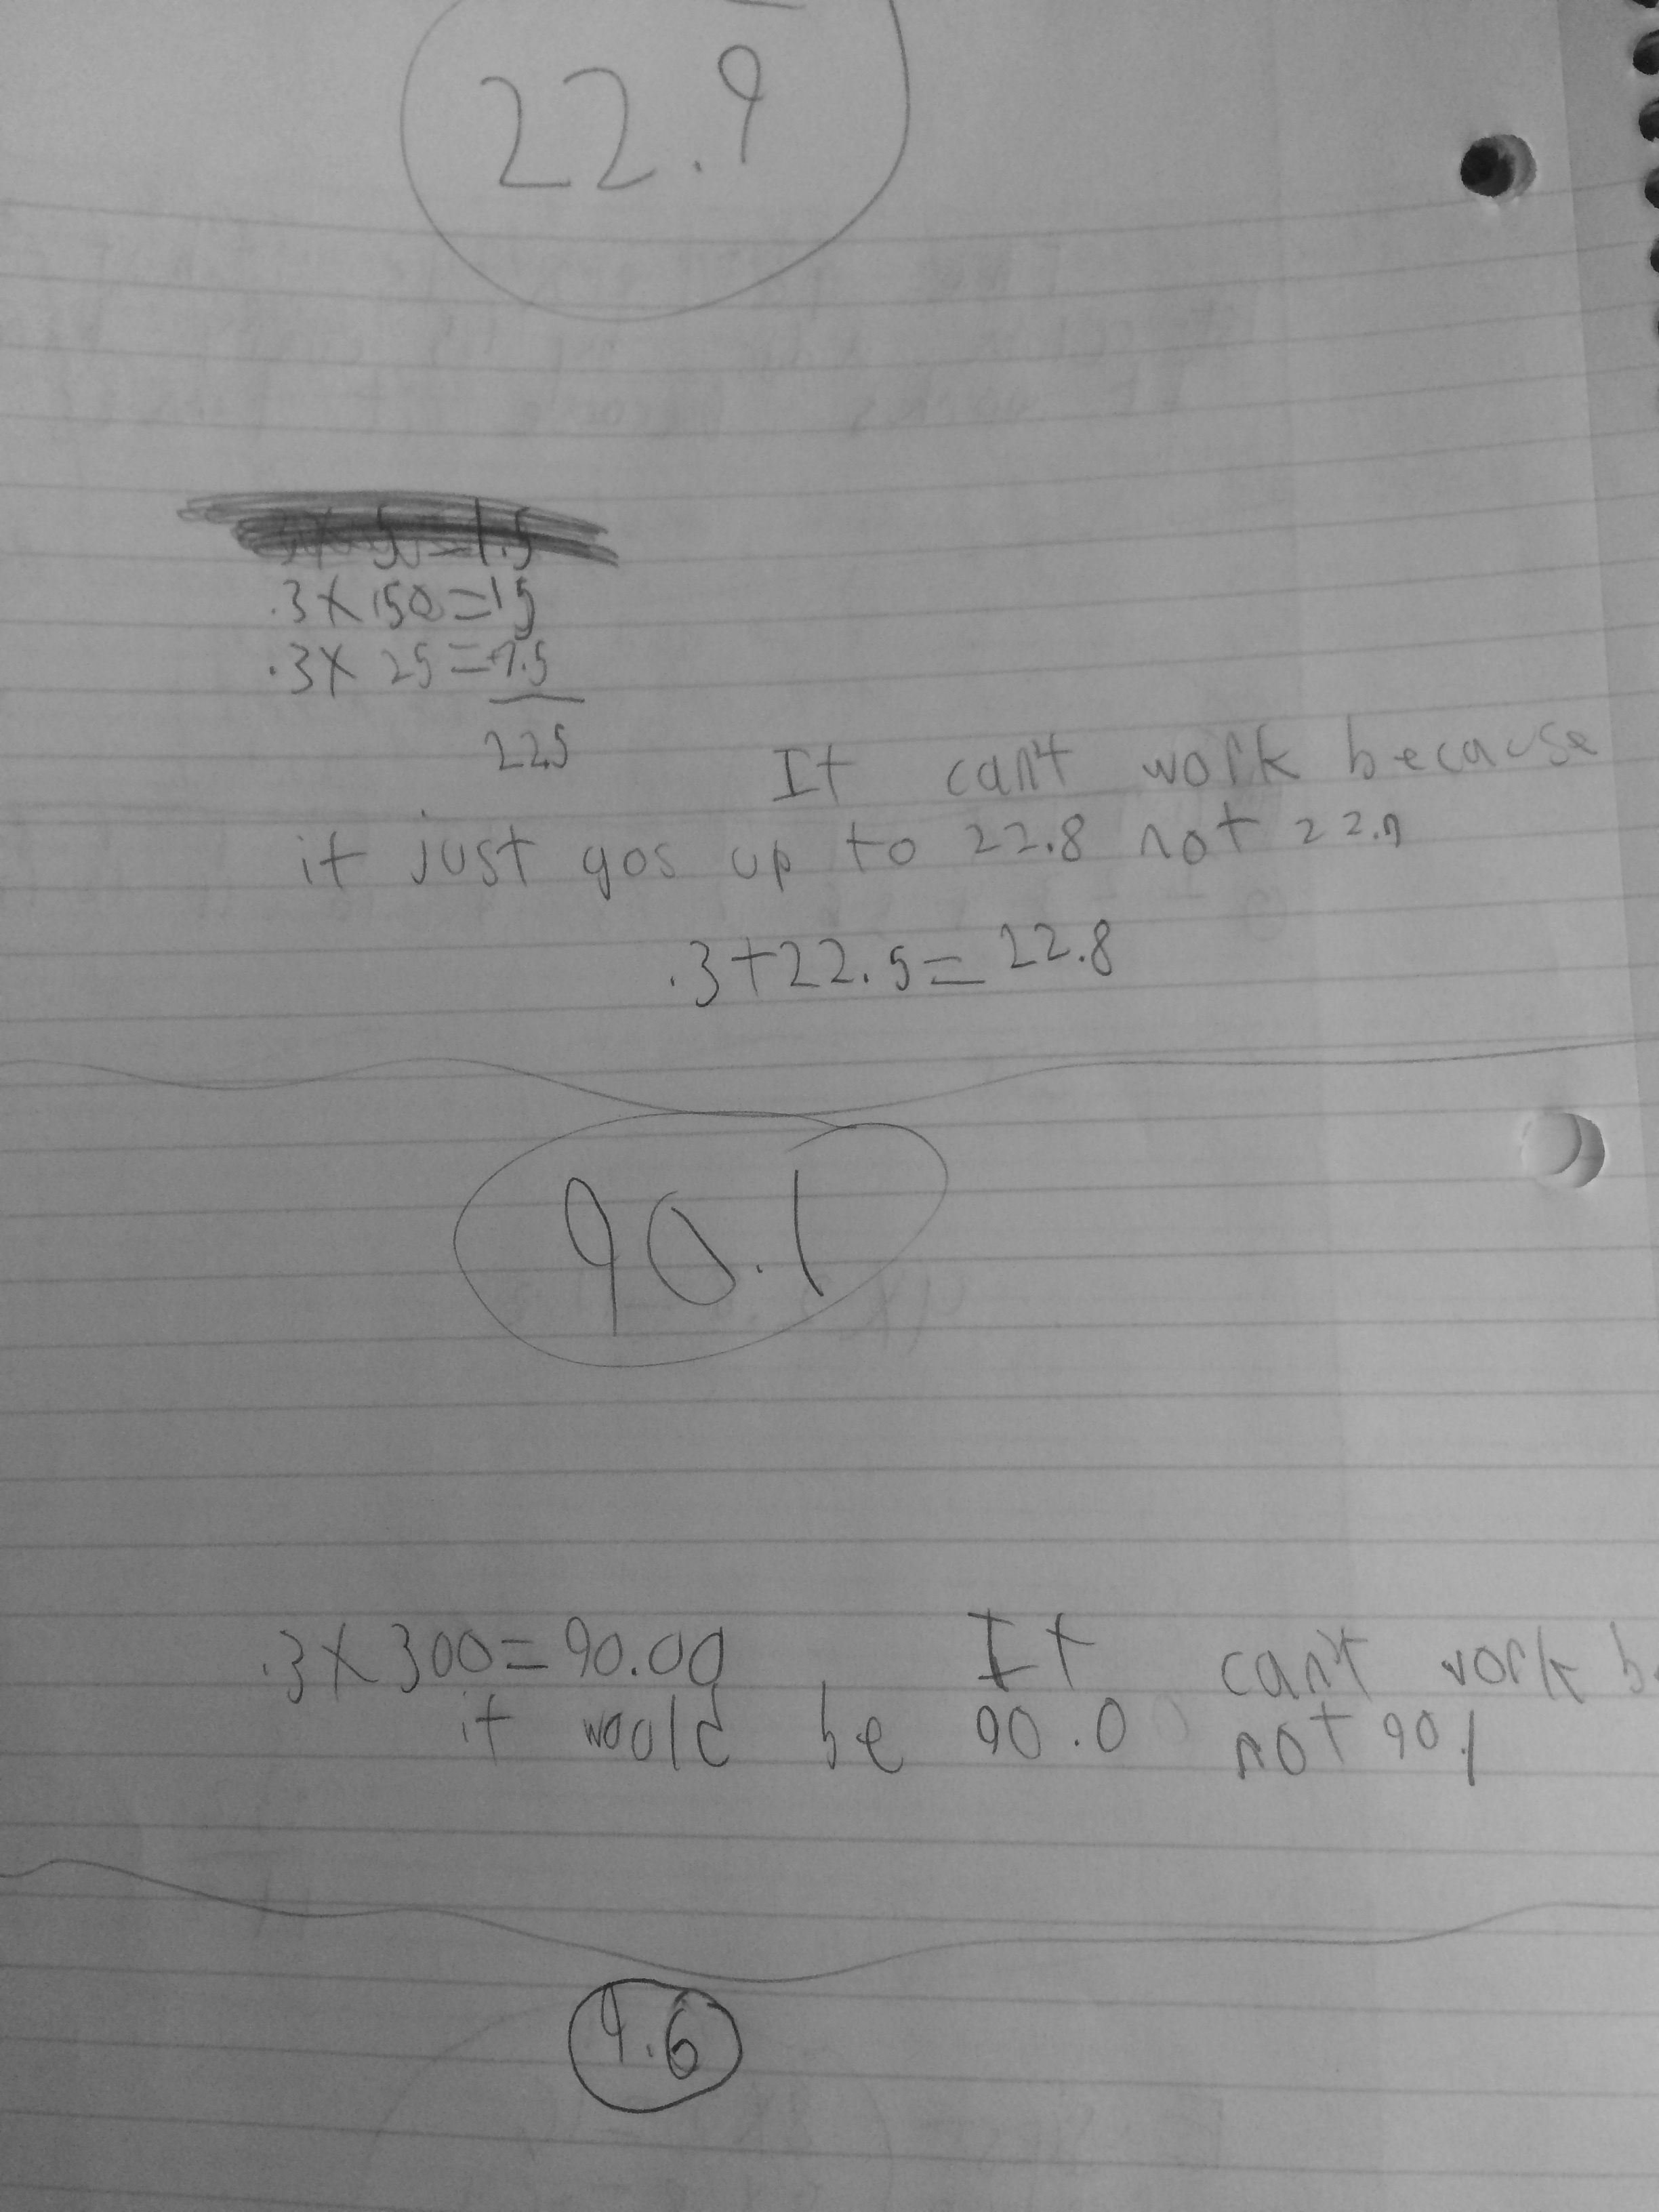 22.9
.3 X 50 = 15
.3 X 25 = +7.5
22.5
It can't work because
it just gos up to 22.8 not 22.9
.3 + 22.5 = 22.8
90.1
.3 X 300 = 90.00
It can't work b
it would be 90.0 not 90.1
9.6